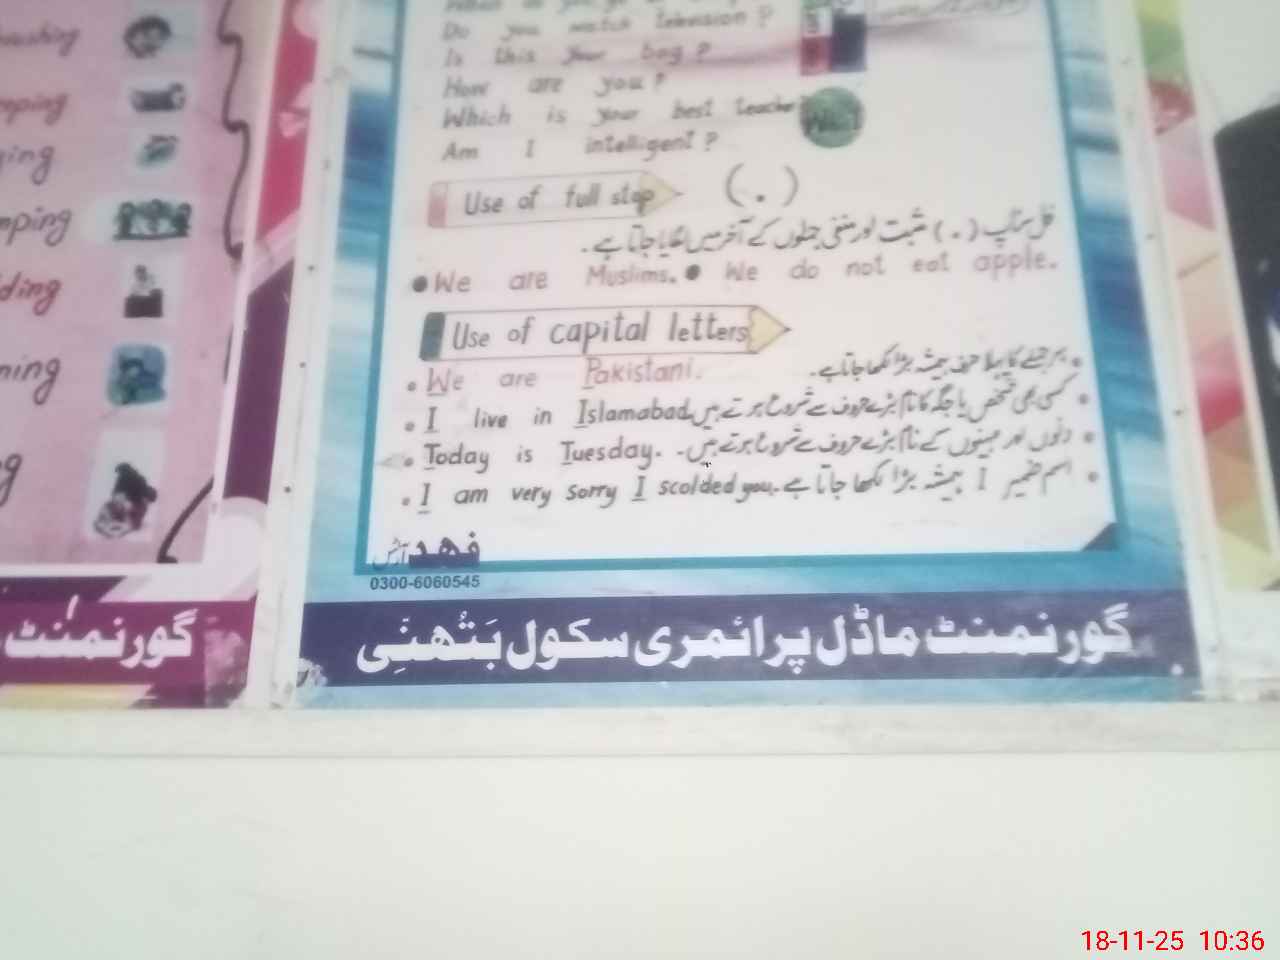 Do you watch television ?
Is this your bag ?
How are you ?
Which is your best teacher
Am I intelligent ?
Use of full stop (.)
فل سٹاپ (.) مثبت اور منفی جملوں کے آخر میں لگایا جاتا ہے۔
●We are Muslims. ● We do not eat apple.
Use of capital letters
• We are Pakistani. • ہر جملے کا پہلا حرف ہمیشہ بڑا لکھا جاتا ہے۔
• I live in Islamabad • کسی بھی شخص یا جگہ کا نام بڑے حروف سے شروع ہوتے ہیں
• Today is Tuesday. • دنوں اور مہینوں کے نام بڑے حروف سے شروع ہوتے ہیں۔
• I am very sorry I scolded you. • اسم ضمیر I ہمیشہ بڑا لکھا جاتا ہے
فهد آرٹس
0300-6060545
گورنمنٹ ماڈل پرائمری سکول بَتُھنَیِ
ging
mping
ding
ning
گورنمنٹ
18-11-25 10:36